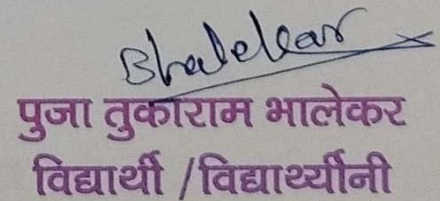 Bhalekar
पुजा तुकाराम भालेकर
विद्यार्थी /विद्यार्थ्यीनी